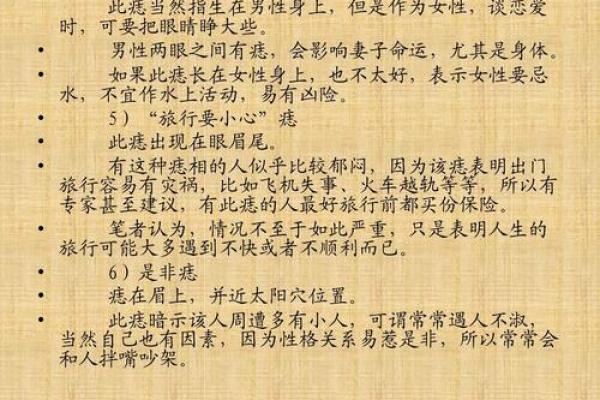 此痣当然指生在男性身上，但是作为女性，谈恋爱
时，可要把眼睛睁大些。
• 男性两眼之间有痣，会影响妻子命运，尤其是身体。
• 如果此痣长在女性身上，也不太好，表示女性要忌
水，不宜作水上活动，易有凶险。
• 5）“旅行要小心”痣
• 此痣出现在眼眉尾。
• 有这种痣相的人似乎比较郁闷，因为该痣表明出门
旅行容易有灾祸，比如飞机失事、火车越轨等等，所以有
专家甚至建议，有此痣的人最好旅行前都买份保险。
• 笔者认为，情况不至于如此严重，只是表明人生的
旅行可能大多遇到不快或者不顺利而已。
• 6）是非痣
• 痣在眉上，并近太阳穴位置。
• 此痣暗示该人周遭多有小人，可谓常常遇人不淑，
当然自己也有因素，因为性格关系易惹是非，所以常常会
和人拌嘴吵架。